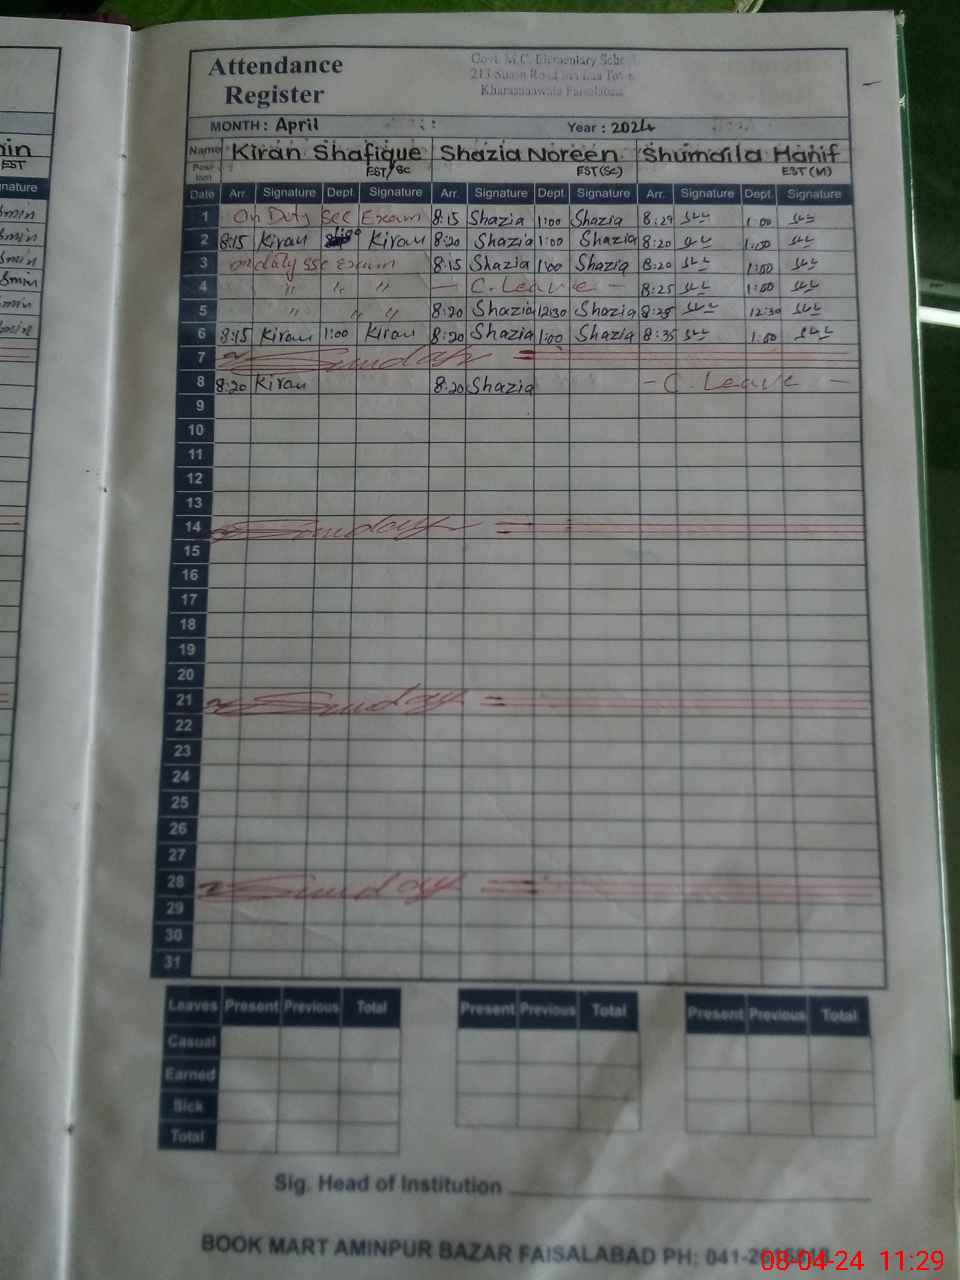 Attendance
Register
Govt. M.C. Elementary School
Khamanaawala Faisalabad
MONTH : April Year : 2024
Name Kiran Shafique Shazia Noreen Shumaila Hanif
EST/SC EST(SC) EST(M)
Date Arr. Signature Dept. Signature Arr. Signature Dept. Signature Arr. Signature Dept. Signature
1 On Duty SSC Exam 8:15 Shazia 1:00 Shazia 8:29 1:00
2 8:15 Kiran 1:00 Kiran 8:20 Shazia 1:00 Shazia 8:20 1:00
3 on duty ssc exam 8:15 Shazia 1:00 Shazia 8:20 1:00
4 " " " — C. Leave — 8:25 1:00
5 " " " 8:20 Shazia 12:30 Shazia 8:25 12:30
6 8:15 Kiran 1:00 Kiran 8:20 Shazia 1:00 Shazia 8:35 1:00
7 Sunday
8 8:20 Kiran 8:20 Shazia — C. Leave —
9
10
11
12
13
14 Sunday
15
16
17
18
19
20
21 Sunday
22
23
24
25
26
27
28 Sunday
29
30
31
Leaves Present Previous Total Present Previous Total Present Previous Total
Casual
Earned
Sick
Total
Sig. Head of Institution
BOOK MART AMINPUR BAZAR FAISALABAD PH: 041-
08-04-24 11:29